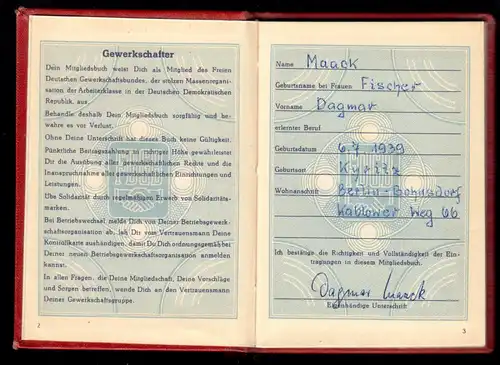 Gewerkschafter
Dein Mitgliedsbuch weist Dich als Mitglied des Freien
Deutschen Gewerkschaftsbundes, der stolzen Massenorgani-
sation, der Arbeiterklasse in der Deutschen Demokratischen
Republik, aus.
Behandle deshalb Dein Mitgliedsbuch sorgfältig und be-
wahre es vor Verlust.
Ohne Deine Unterschrift hat dieses Buch keine Gültigkeit.
Pünktliche Beitragszahlung in richtiger Höhe gewährleistet
Dir die Ausübung aller gewerkschaftlichen Rechte und die
Inanspruchnahme aller gewerkschaftlichen Einrichtungen und
Leistungen.
Übe Solidarität durch regelmäßigen Erwerb von Solidaritäts-
marken.
Bei Betriebswechsel melde Dich von Deiner Betriebsgewerk-
schaftsorganisation ab, laß Dir vom Vertrauensmann Deine
Kontrollkarte aushändigen, damit Du Dich ordnungsgemäß bei
Deiner neuen Betriebsgewerkschaftsorganisation anmelden
kannst.
In allen Fragen, die Deine Mitgliedschaft, Deine Vorschläge
und Sorgen betreffen, wende Dich an den Vertrauensmann
Deiner Gewerkschaftsgruppe.
2
Name Maack
Geburtsname bei Frauen Fischer
Vorname Dagmar
erlernter Beruf
Geburtsdatum 6.7 1939
Geburtsort Kyritz
Wohnanschrift Berlin-Bohnsdorf
Kablower Weg 66
Ich bestätige die Richtigkeit und Vollständigkeit der Ein-
tragungen in diesem Mitgliedsbuch.
Dagmar Maack
Eigenhändige Unterschrift
3